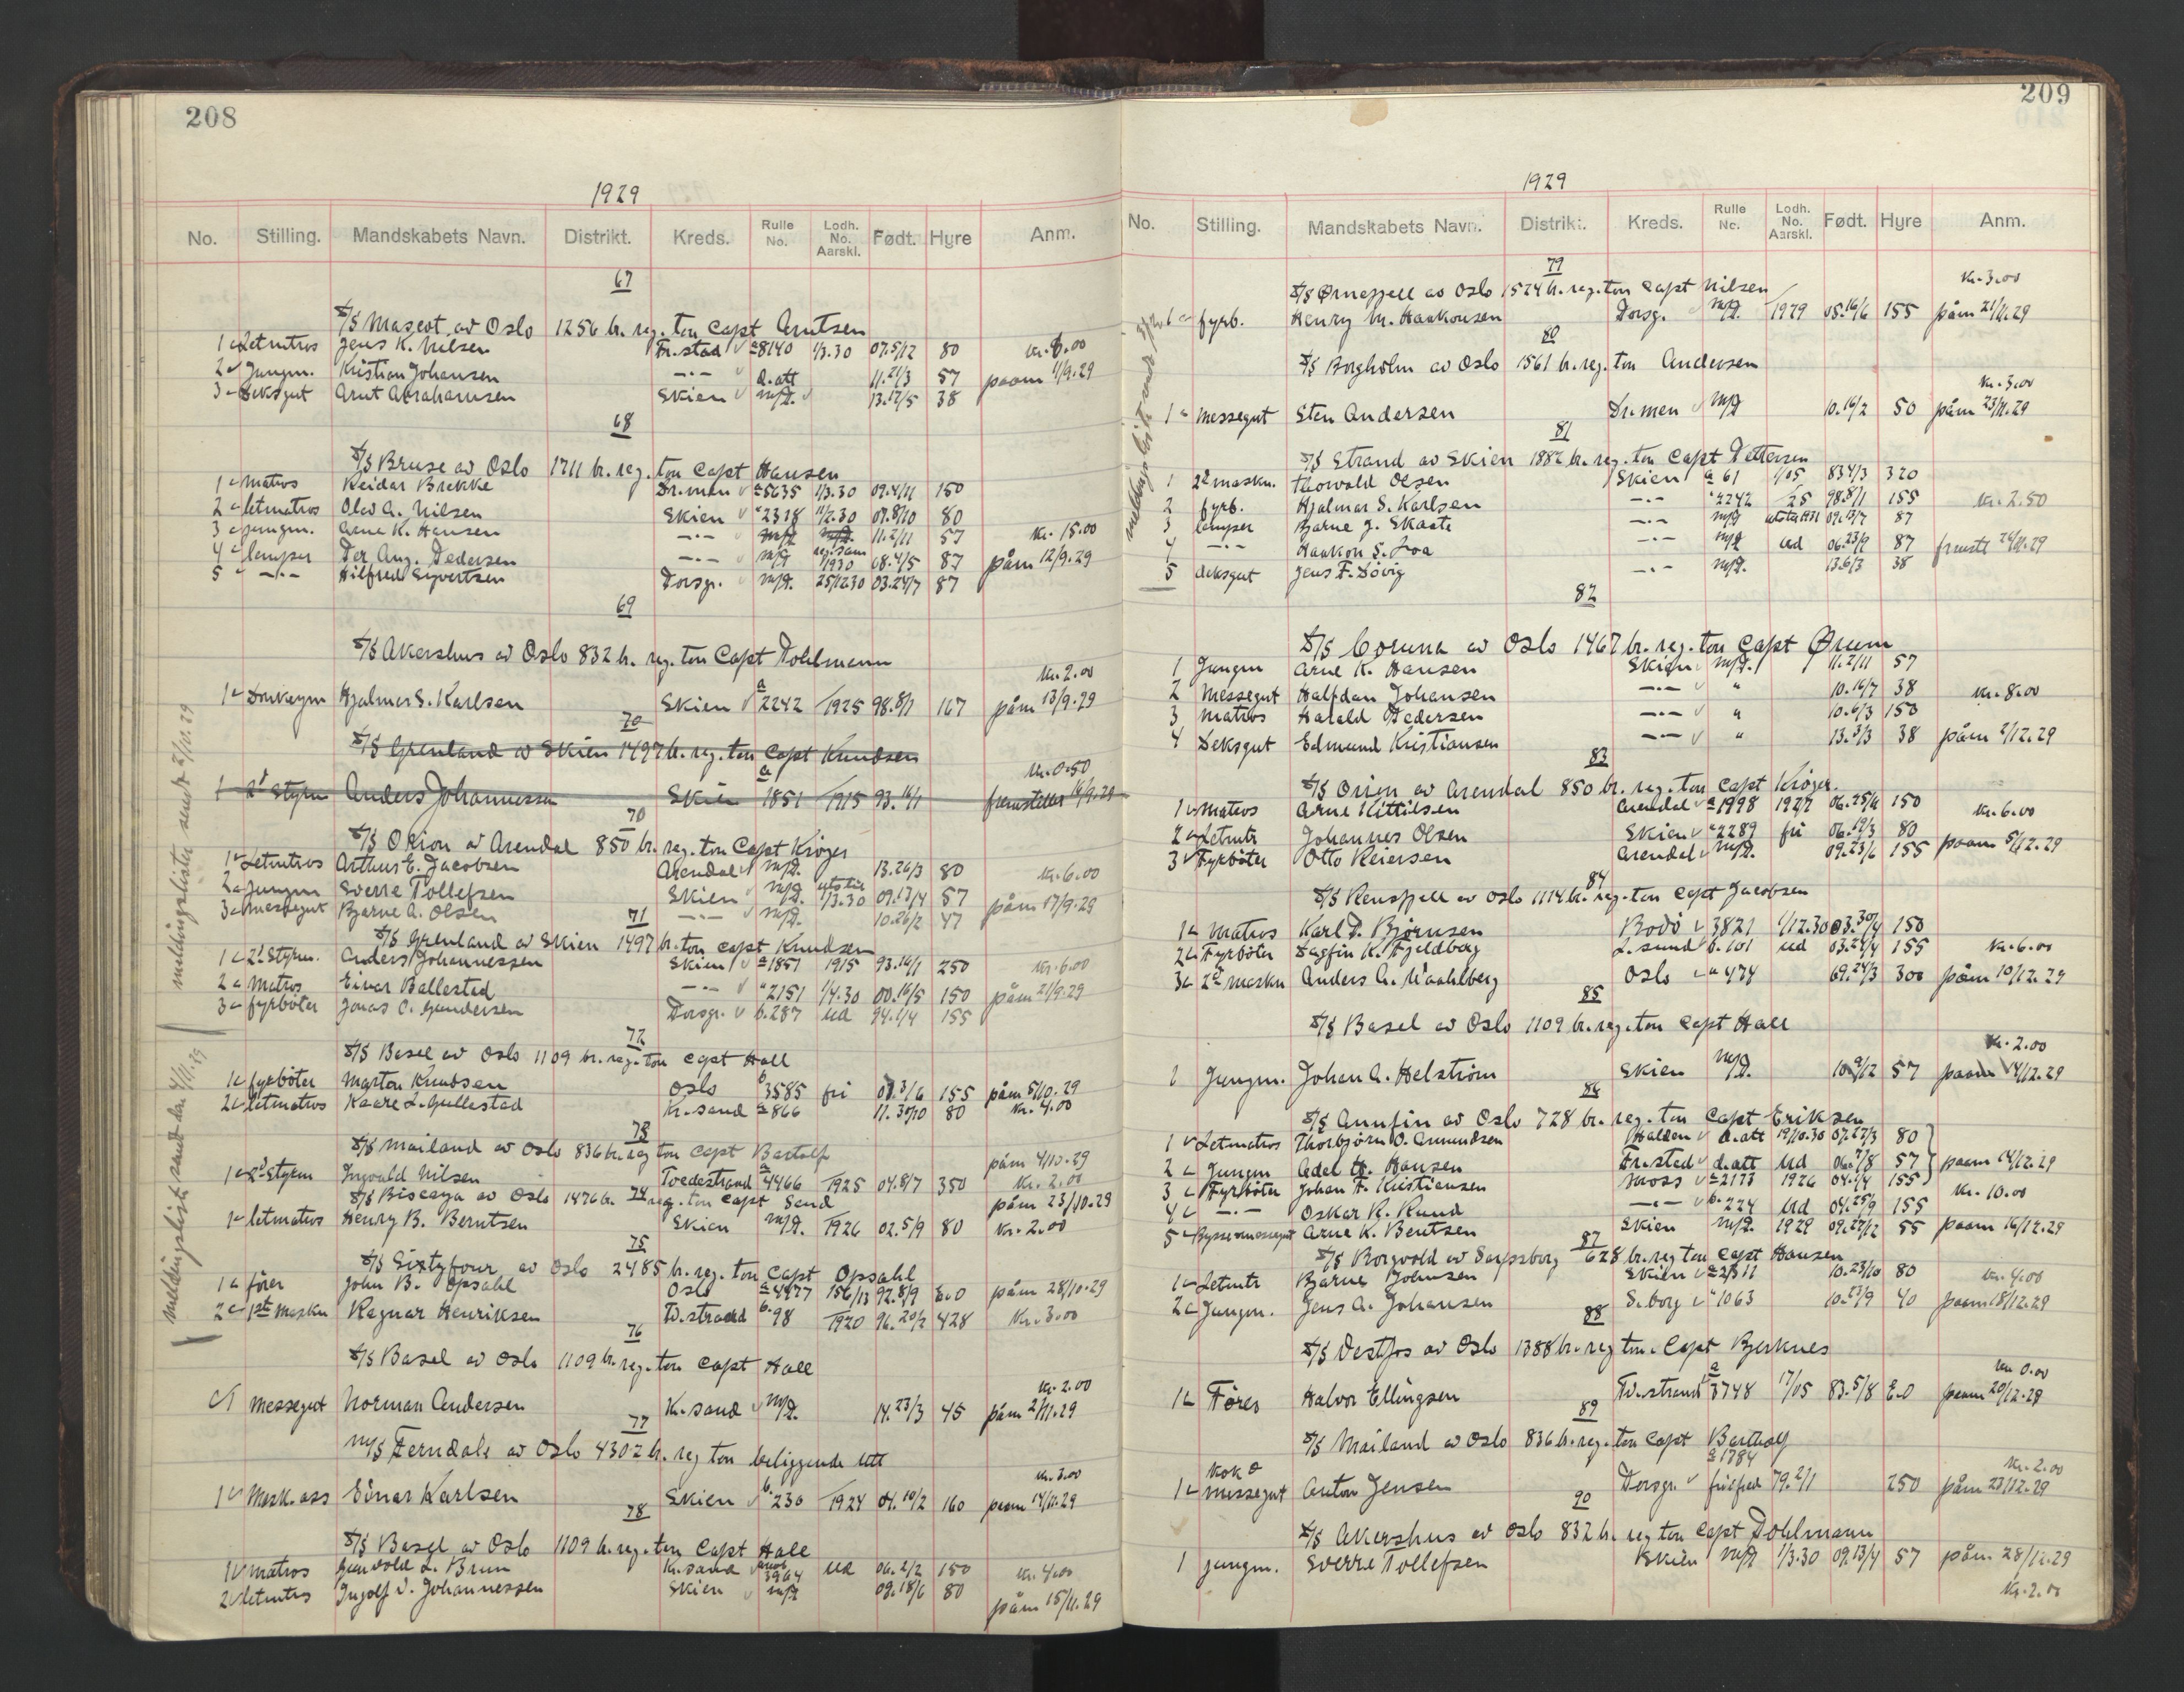 208
1929
No. Stilling. Mandskabets Navn. Distrikt. Kreds. Rulle No. Lodh. No. Aarskl. Født. Hyre Anm.
67
S/S Mascot av Oslo 1256 br. reg. ton Capt Arntsen
1 Letmtros Jens K. Nilsen Fr.stad a 8140 1/3.30 07.5/12 80 kr. 6.00
2 Jungm. Kristian Johansen -"- d.att 11.21/3 57 paam 11/9.29
3 Deksgut Arnt Abrahamsen Skien m/p. 13.17/5 38
68
S/S Bruse av Oslo 1711 br. reg. ton Capt Hansen
1 Matros Reidar Brekke Dr.men a 5635 1/3.30 09.4/11 150
2 letmatros Olav A. Nilsen Skien " 2318 11/2.30 07.8/10 80
3 jungm. Arne K. Hansen -"- m/p. 11.2/11 57 kr. 15.00
4 lemper Per Aug. Pedersen -"- m/p 1/1930 08.4/5 87 påm 12/9.29
5 -"- Hilfred Syvertsen Porsgr. m/p. 25/12.30 03.24/7 87
69
S/S Akershus av Oslo 832 br. reg. ton Capt Dohlmann
kr. 2.00
1 Donkeym Hjalmar S. Karlsen Skien a 2242 1925 98.8/1 167 påm 13/9.29
70
S/S Grenland av Skien 1497 br. reg. ton Capt Knudsen
kr. 0.50
1 2d Styrm Anders Johannessen Skien a 1851 1915 93.16/1 fremstillet 16/9.29
70
S/S Orion av Arendal 850 br. reg. ton Capt Krøger
1 Letmtros Arthur E. Jacobsen Arendal m/p. 13.26/3 80 kr. 6.00
2 Jungm Sverre Tollefsen Skien m/p. utsta 1/3.30 09.13/4 57 påm 17/9.29
3 Messegut Bjarne A. Olsen -"- m/p. 10.26/2 47
71
S/S Grenland av Skien 1497 br. ton Capt Knudsen
1 2d Styrm. Anders Johannessen Skien a 1851 1915 93.16/1 250 kr. 6.00
2 Matros Einar Ballestad -"- " 2151 1/4.30 00.16/5 150 påm 21/9.29
3 fyrbøter Jonas C. Gundersen Porsgr. b. 287 Ud 94.1/4 155
72
S/S Basel av Oslo 1109 br. reg. ton Capt Hall
1 fyrbøter Marton Knudsen Oslo b 3585 fri 07.3/6 155 påm 5/10.29
2 letmatros Kaare L. Gullestad Kr.sand a 866 11.30/10 80 kr. 4.00
73
S/S Mailand av Oslo 836 br. reg ton Capt Bartholf
påm 4/10.29
1 2d Styrm Ingvald Nilsen Tvedestrand a 4466 1925 04.8/7 350 kr. 2.00
74
S/S Biscaya av Oslo 1476 br. reg. ton Capt Sand
påm 23/10.29
1 letmatros Henry B. Berntsen Skien m/p. 1926 02.5/9 80 kr. 2.00
75
S/S Sixtyfour av Oslo 2485 br. reg. ton Capt Opsahl
1 fører John B. Opsahl Oslo a 4477 156/13 92.8/9 E.O påm 28/10.29
2 1ste Maskn Ragnar Henriksen Tv.strand b. 98 1920 96.20/2 428 kr. 3.00
76
S/S Basel av Oslo 1109 br. reg. ton Capt Hall
kr. 2.00
1 Messegut Norman Andersen K.sand m/p. 14.23/3 45 påm 2/11.29
77
M/S Ferndale av Oslo 4302 br. reg ton beliggende
kr. 3.00
1 Mask.ass Einar Karlsen Skien b. 230 1924 04.10/2 160 paam 14/11.29
78
S/S Basel av Oslo 1109 br. reg. ton Capt Hall
1 Matros L. Brun Kr.sand 3964 Ud 06.2/2 150 kr. 4.00
2 letmtrs Ingolf V. Johannessen Skien m/p 09.18/6 80 påm 15/11.29
meldingslister sendt 2/10.29
meldingslist sendt den 4/11.29
209
1929
No. Stilling. Mandskabets Navn. Distrikt. Kreds. Rulle No. Lodh. No. Aarskl. Født. Hyre Anm.
79
S/S Ørnefjell av Oslo 1524 br. reg. ton Capt Nilsen
kr. 3.00
fyrb. Henry M. Haakonsen Porsgr. m/p. 1929 08.16/6 155 påm 21/11.29
80
S/S Borgholm av Oslo 1561 br. reg. ton Andersen
kr. 3.00
1 Messegut Sten Andersen Dr.men m/p 10.16/2 50 påm 23/11.29
81
S/S Strand av Skien 1882 br. reg. ton Capt Pettersen
1 2d maskn. Thorvald Olsen Skien a 61 1/05 83.4/3 320
2 fyrb. Hjalmar S. Karlsen -"- " 2242 /25 98.8/1 155 kr. 2.50
3 lemper Bjarne J. Skaate -"- m/p utsta 1931 09.13/7 87
4 -"- Haakon S. Moa -"- m/p Ud 06.23/9 87 fremst 26/11.29
5 deksgut Jens F. Søvig -"- m/p. 13.6/3 38
82
S/S Coruna av Oslo 1467 br. reg. ton Capt Ørum
1 Jungm Arne K. Hansen Skien m/p. 11.2/11 57
2 Messegut Halfdan Johansen -"- " 10.16/7 38 kr. 8.00
3 Matros Harald Pedersen -"- " 10.6/3 150
4 Deksgut Edmund Kristiansen -"- " 13.3/3 38 påm 2/12.29
83
S/S Orion av Arendal 850 br. reg. ton Capt Krøger.
1 Matros Arne Kittilsen Arendal a 1998 1927 06.25/6 150 kr. 6.00
2 Letmtr Johannes Olsen Skien " 2289 fri 06.19/3 80
3 Fyrbøter Otto Reiersen Arendal m/p. 09.23/6 155 paam 5/12.29
84
S/S Rensfjell av Oslo 1114 br. reg. ton Capt Jacobsen
1 Matros Karl P. Bjørnsen Bodö 3821 1/12.30 03.30/4 150
2 Fyrbøter Dagfin K. Fjeldberg L.sund b. 101 Ud 03.24/4 155 kr. 6.00
3 2d Maskn Anders A. Waahlberg Oslo " 474 69.24/3 300 påm 10/12.29
85
S/S Basel av Oslo 1109 br. reg. ton Capt Hall
kr. 2.00
1 Jungm. Johan A. Helström Skien m/p. 10.9/12 57 paam 14/12.29
86
S/S Annfin av Oslo 728 br. reg. ton Capt Eriksen
1 Letmatros Thorbjørn O. Amundsen Halden d.att 19/10.30 07.27/3 80
2 Jungm Adel H. Hansen Fr.stad d.att Ud 06.7/8 57 paam 14/12.29
3 Fyrbøter Johan F. Kristiansen Moss a 2173 1926 04.1/4 155
4 -"- Oskar R. Rund -"- b. 224 Ud 04.25/9 155 kr. 10.00
5 Bysse & messegut Arne K. Bentsen Skien m/p. 1929 09.27/12 55 paam 16/12.29
87
S/S Borgvold av Sarpsborg 628 br. reg ton Capt Hansen
1 Letmtr Bjarne Johnsen Skien a 2311 10.23/10 80 kr. 4.00
2 Jungm. Jens A. Johansen S.borg " 1063 10.23/9 40 paam 18/12.29
88
S/S Vestfos av Oslo 1388 br. reg ton. Capt Bjerknes
kr 0.00
1 Fører Halvor Ellingsen Tv.strand a 3748 17/05 83.5/8 E.O paam 20/12.29
89
S/S Mailand av Oslo 836 br. reg. ton Capt Bartholf
kr. 2.00
1 Kok & messegut Anton Jensen Porsgr. a 1784 79.2/1 250 påm 23/12.29
90
S/S Akershus av Oslo 832 br. reg ton Capt Dohlmann
1 jungm. Sverre Tollefsen Skien m/p 1/3.30 09.13/4 57 påm 28/12.29
kr. 2.00